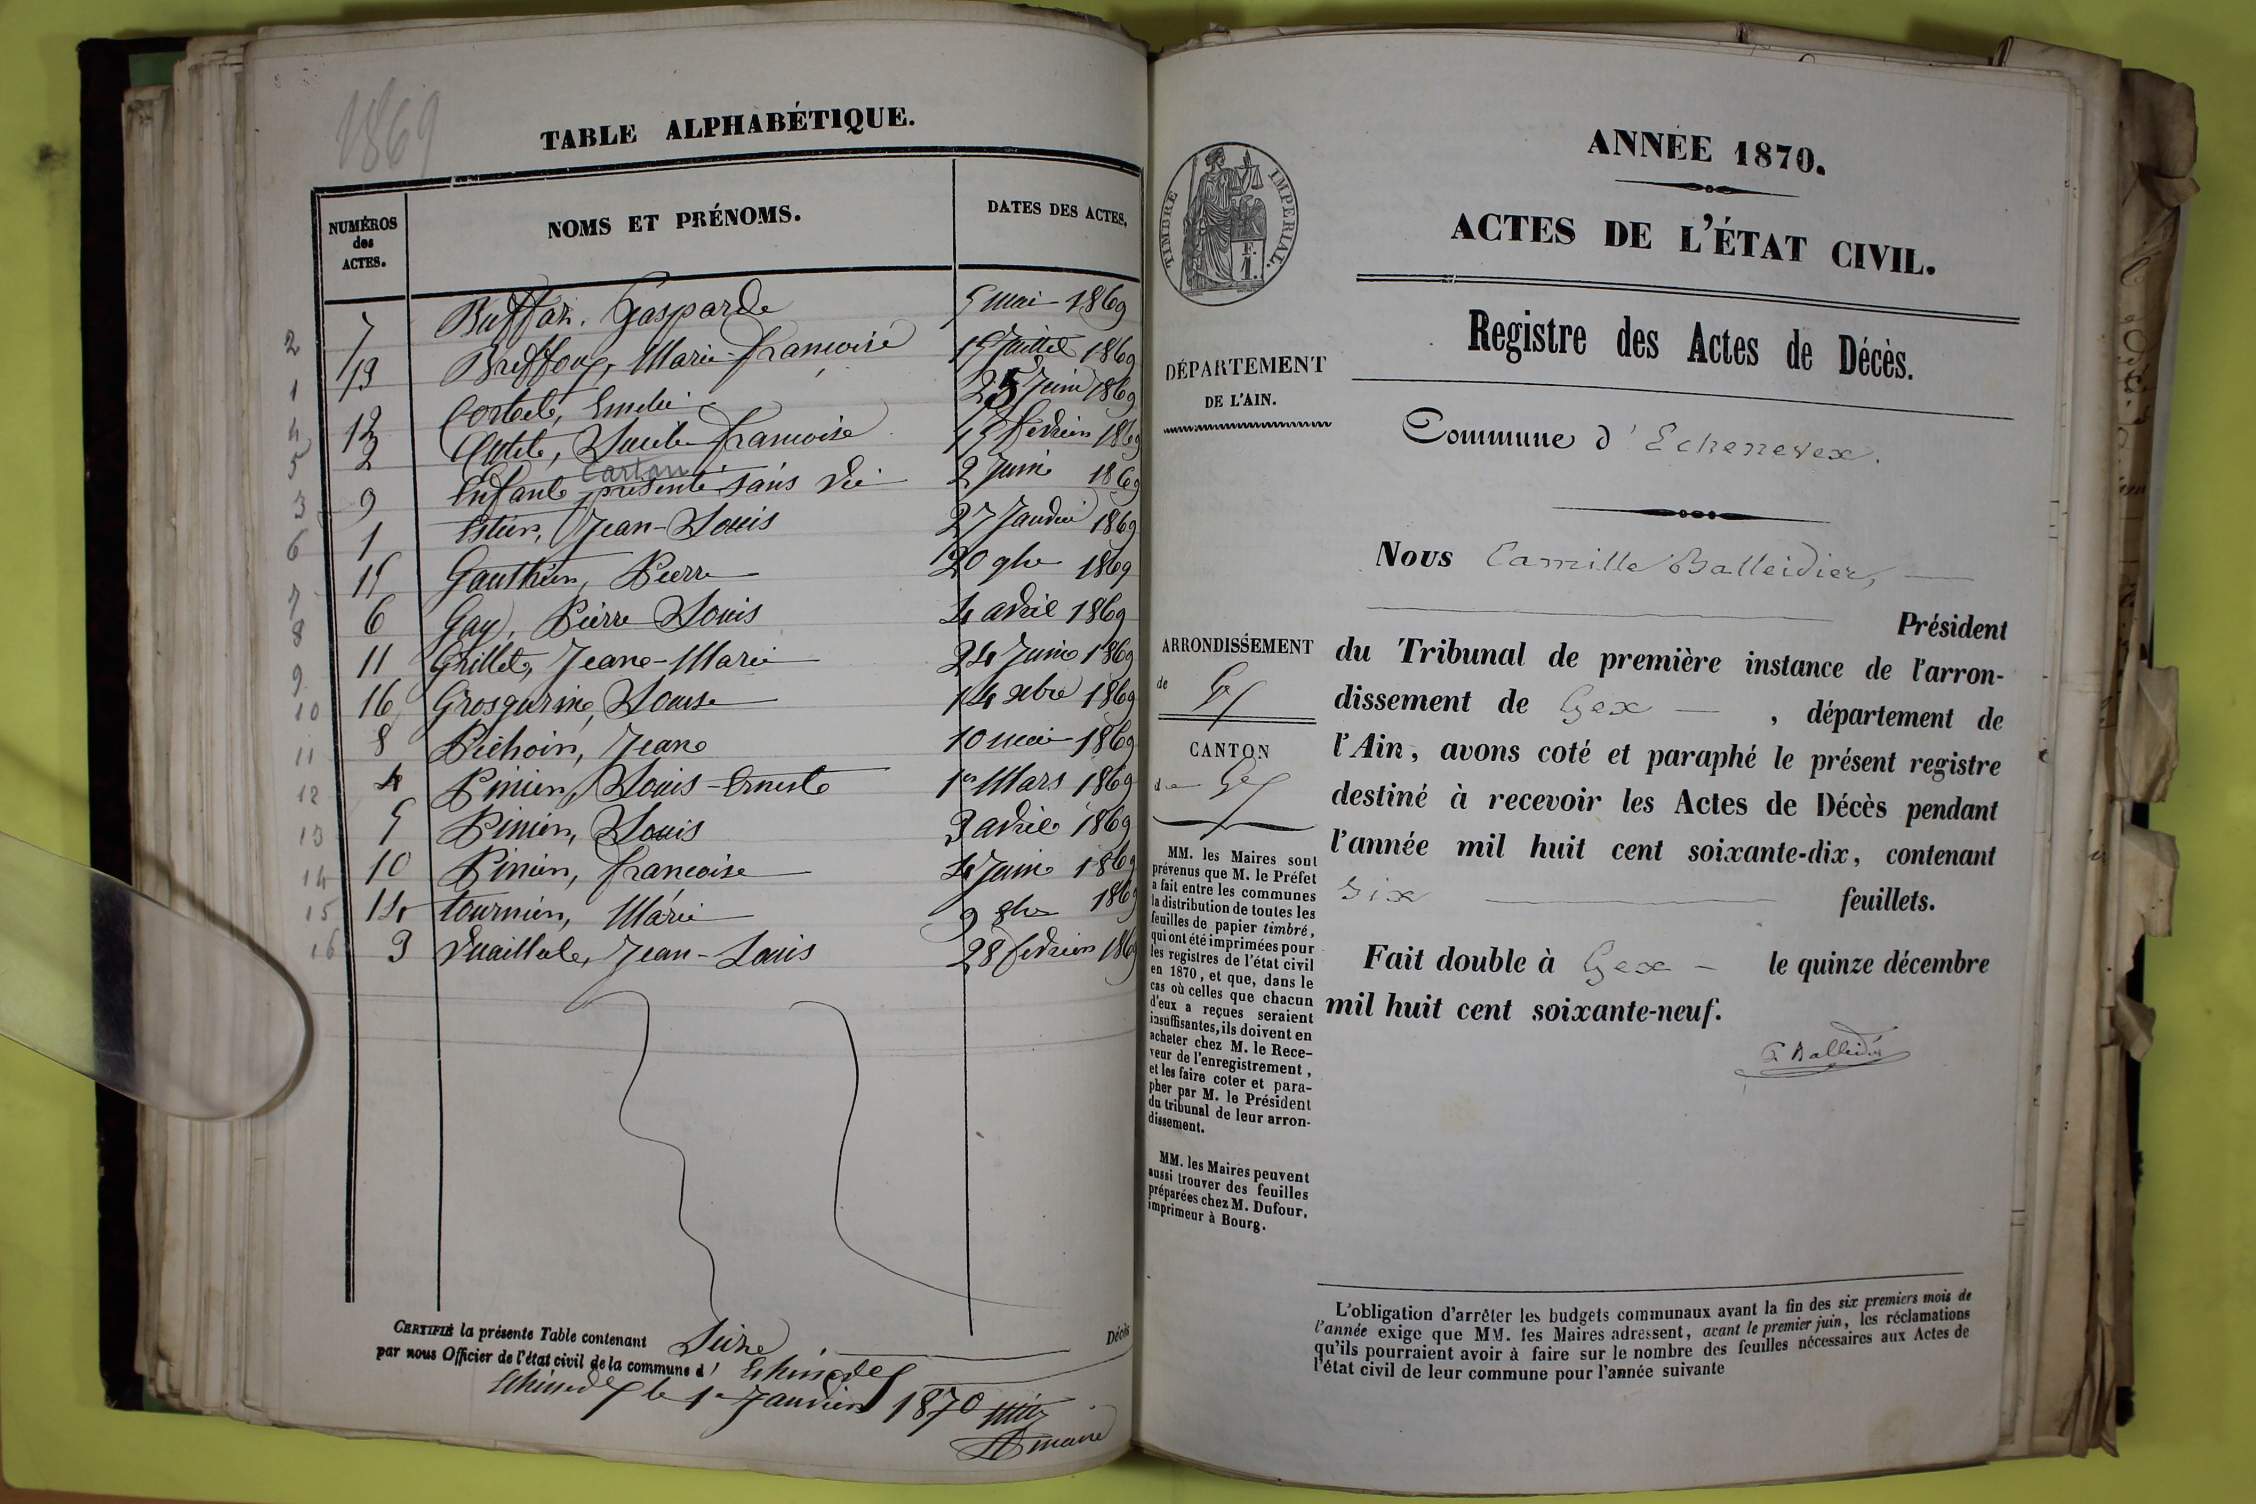 1869
TABLE ALPHABÉTIQUE.
NUMÉROS des ACTES.
NOMS ET PRÉNOMS.
DATES DES ACTES.
2 7 Gasparde 5 mai 1869
1 13 Marie-françoise 15 Juillet 1869
4 12 25 Juin 1869
5 2 françoise 15 février 1869
Cartan
3 9 Enfant présenté sans vie 2 Juin 1869
6 1 Estier, Jean-Louis 27 Janvier 1869
7 15 Gauthier, Pierre 20 9bre 1869
8 6 Gay, Pierre Louis 4 avril 1869
9 11 Grillet, Jeane-Marie 24 Juin 1869
10 16 Grosgurin, Louise 14 xbre 1869
11 8 Jeane 10 mai 1869
12 4 Pinier, Louis-Erneste 1er Mars 1869
13 5 Pinier, Louis 3 avril 1869
14 10 Pinier, françoise 4 Juin 1869
15 14 tournier, Marie 9 8bre 1869
16 3 Vuaillat, Jean-Louis 28 février 1869
CERTIFIÉ la présente Table contenant Seize Décès
par nous Officier de l'état civil de la commune d' Echenevex
Echenevex le 1er Janvier 1870
maire
TIMBRE IMPERIAL.
F.
1.
DÉPARTEMENT
DE L'AIN.
ARRONDISSEMENT
de Gex
CANTON
de Gex
MM. les Maires sont
prévenus que M. le Préfet
a fait entre les communes
la distribution de toutes les
feuilles de papier timbré,
qui ont été imprimées pour
les registres de l'état civil
en 1870, et que, dans le
cas où celles que chacun
d'eux a reçues seraient
insuffisantes, ils doivent en
acheter chez M. le Rece-
veur de l'enregistrement,
et les faire coter et para-
pher par M. le Président
du tribunal de leur arron-
dissement.
MM. les Maires peuvent
aussi trouver des feuilles
préparées chez M. Dufour,
imprimeur à Bourg.
ANNÉE 1870.
ACTES DE L'ÉTAT CIVIL.
Registre des Actes de Décès.
Commune d'Echenevex.
Nous Camille Balleidier,
Président
du Tribunal de première instance de l'arron-
dissement de Gex, département de
l'Ain, avons coté et paraphé le présent registre
destiné à recevoir les Actes de Décès pendant
l'année mil huit cent soixante-dix, contenant
Six feuillets.
Fait double à Gex le quinze décembre
mil huit cent soixante-neuf.
C. Balleidier
L'obligation d'arrêter les budgets communaux avant la fin des six premiers mois de
l'année exige que MM. les Maires adressent, avant le premier juin, les réclamations
qu'ils pourraient avoir à faire sur le nombre des feuilles nécessaires aux Actes de
l'état civil de leur commune pour l'année suivante